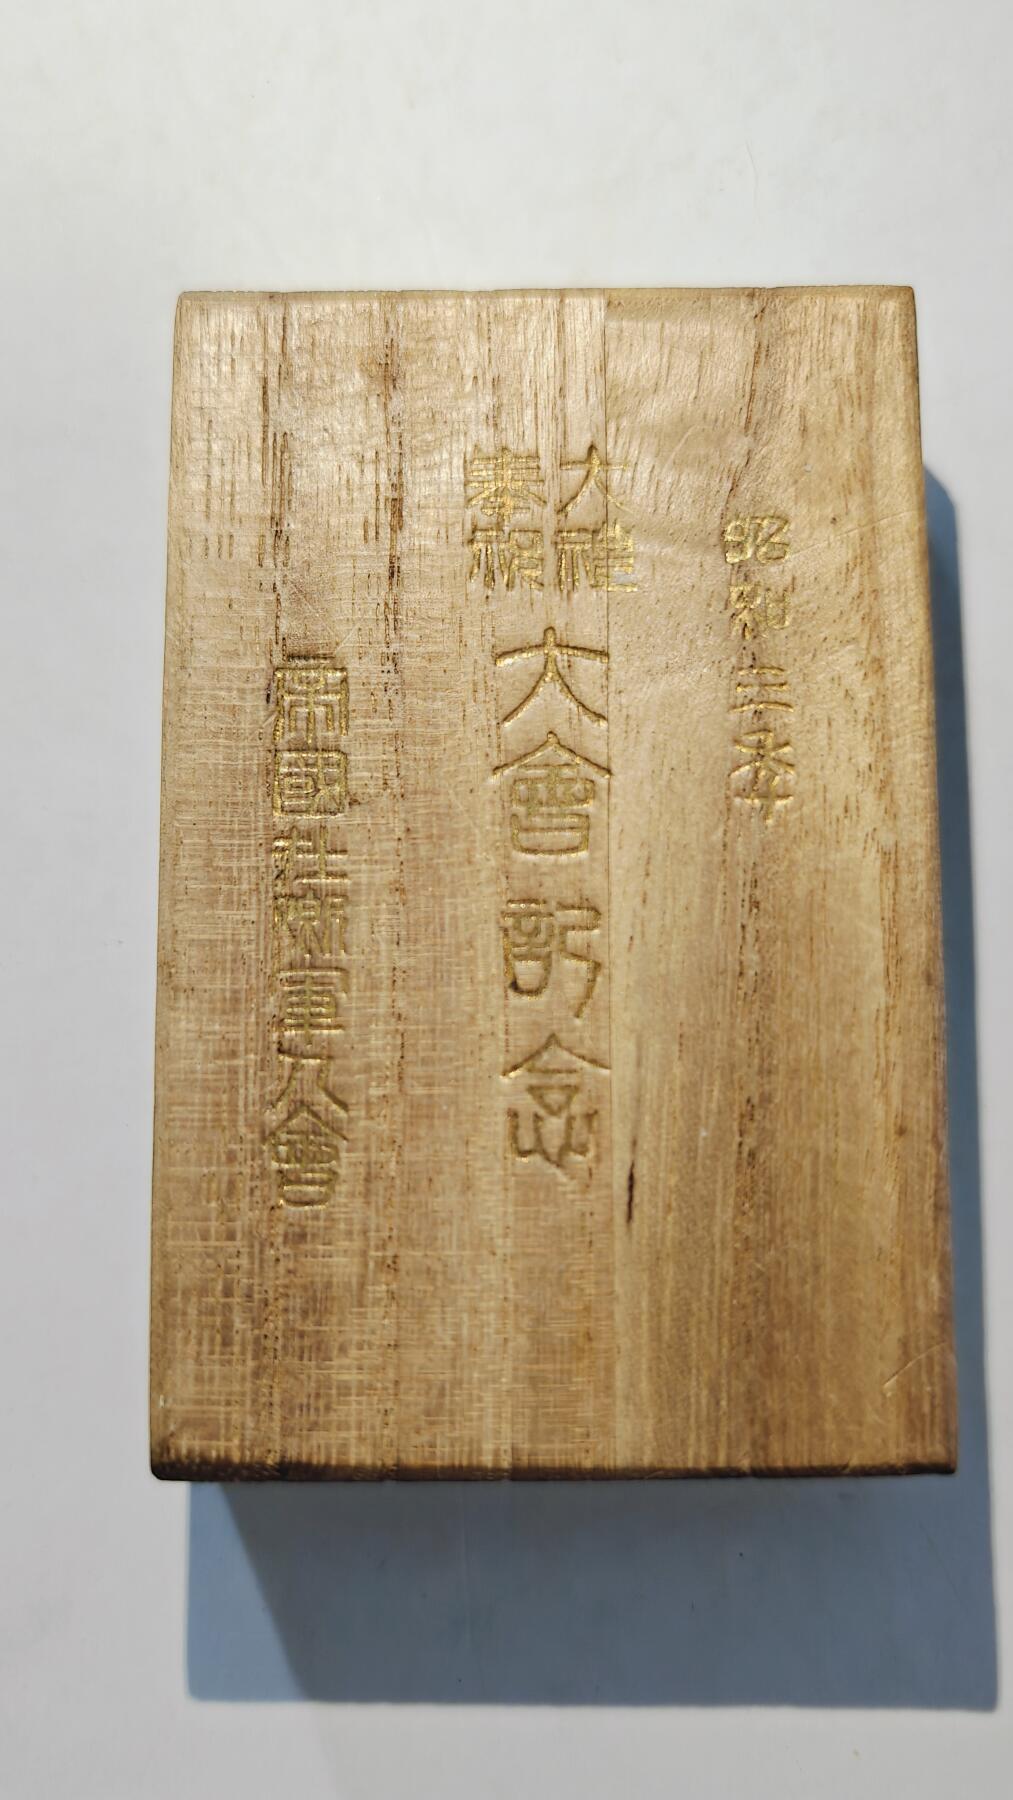 昭和三年
大禮奉祝
大會記念
帝國在鄕軍人會